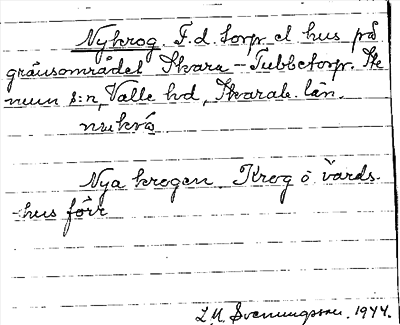 Nykrog. F.d. torp el hus på
gränsområdet Skara - Tubbetorp. Ste
num s:n, Valle hd, Skarab. län.
nukrå
Nya krogen. Krog o värds-
hus förr
L. M. Svenungsson. 1944.